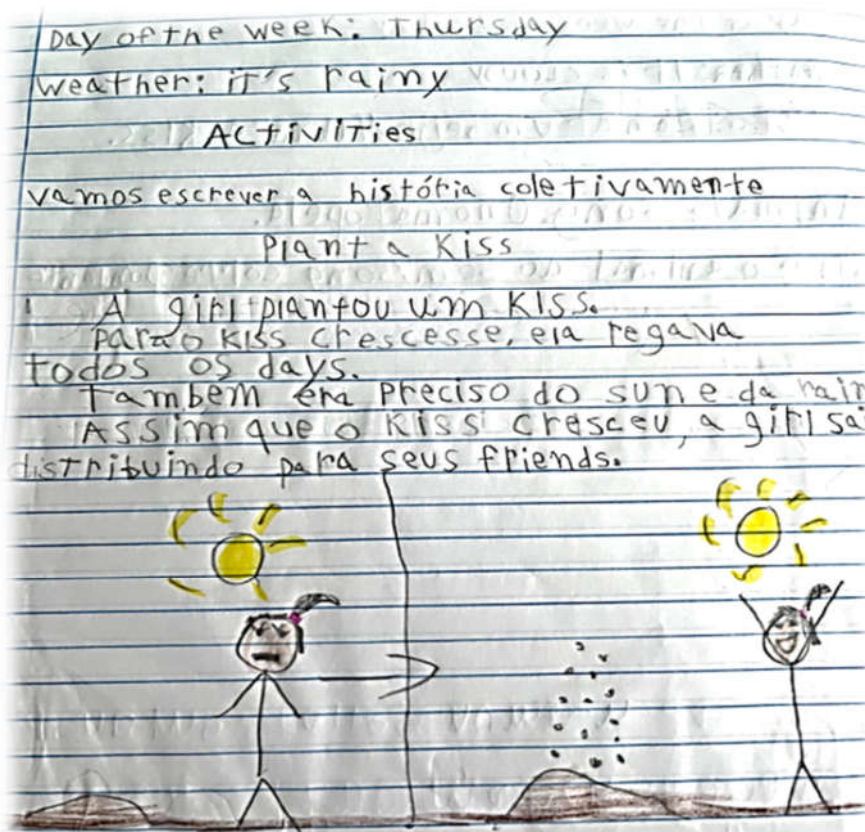 Day of the week: Thursday
Weather: it's rainy
Activities
vamos escrever a história coletivamente
Plant a Kiss
A girl plantou um Kiss.
Para o Kiss crescesse, ela regava
todos os days.
Também era preciso do sun e da rain
Assim que o Kiss cresceu, a girl sa
distribuindo para seus friends.